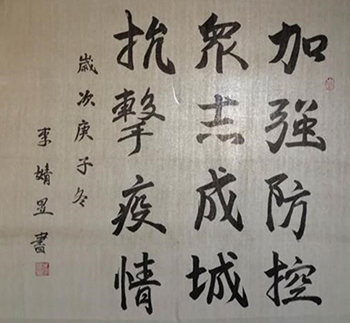 加强防控
眾志成城
抗擊疫情
歲次庚子冬
李婧昱書